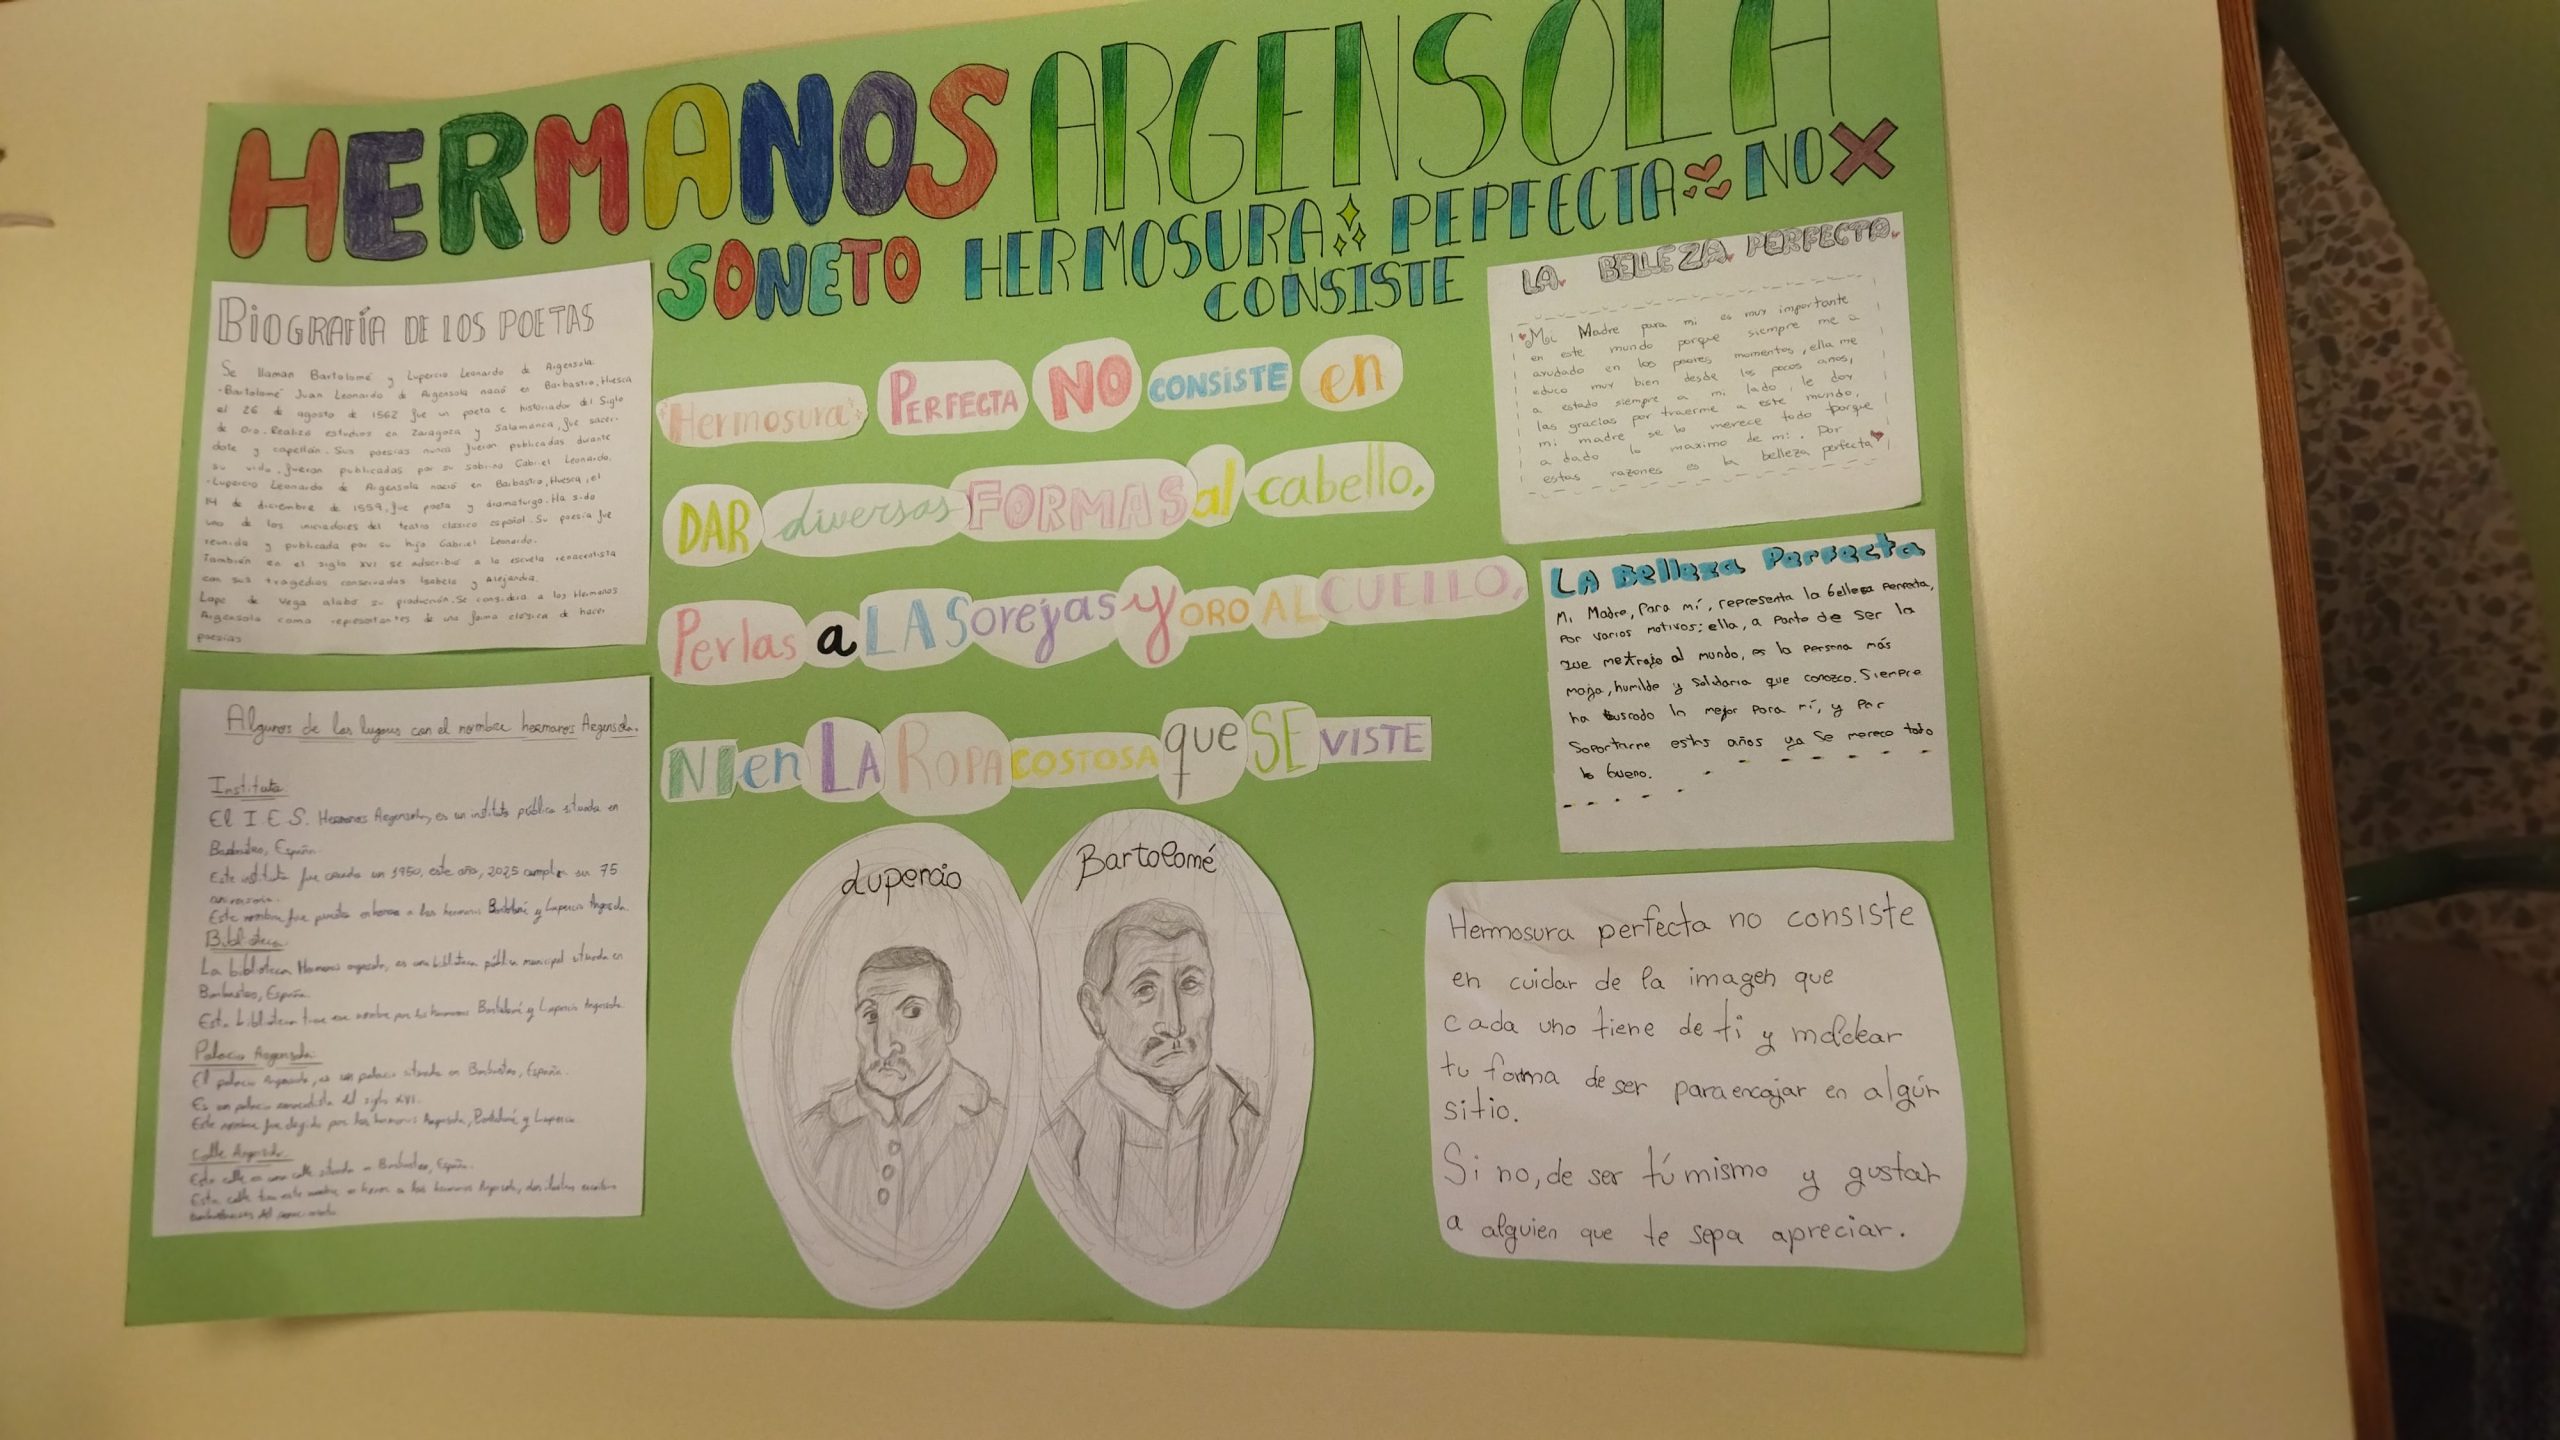 HERMANOS ARGENSOLA
SONETO HERMOSURA PEPFECTA NO
CONSISTE
BIOGRAFÍA DE LOS POETAS
Se llaman Bartolomé y Lupercio Leonardo de Argensola.
-Bartolomé Juan Leonardo de Argensola nació en Barbastro, Huesca
el 26 de agosto de 1562 fue un poeta e historiador del Siglo
de Oro. Realizó estudios en Zaragoza y Salamanca, fue sacer-
dote y capellán. Sus poesías nunca fueron publicadas durante
su vida, fueron publicadas por su sobrino Gabriel Leonardo.
-Lupercio Leonardo de Argensola nació en Barbastro, Huesca, el
14 de diciembre de 1559, fue poeta y dramaturgo. Ha sido
uno de los iniciadores del teatro clásico español. Su poesía fue
reunida y publicada por su hijo Gabriel Leonardo.
También en el siglo XVI se adscribió a la escuela renacentista
con sus tragedias conservadas Isabela y Alejandra.
Lope de Vega alabó su producción. Se considera a los Hermanos
Argensola como representantes de una forma clásica de hacer
poesías
Algunos de los lugares con el nombre hermanos Argensola.
Instituto
El I.E.S. Hermanos Argensola, es un instituto público situado en
Barbastro, España.
Este instituto fue creado un 1950, este año, 2025 cumple su 75
aniversario.
Este nombre fue puesto en honor a los hermanos Bartolomé y Lupercio Argensola.
Biblioteca
La biblioteca Hermanos argensola, es una biblioteca pública municipal situada en
Barbastro, España.
Esta biblioteca tiene ese nombre por los hermanos Bartolomé y Lupercio Argensola.
Palacio Argensola
El palacio Argensola, es un palacio situado en Barbastro, España.
Es un palacio renacentista del siglo XVI.
Este nombre fue elegido por los hermanos Argensola, Bartolomé y Lupercio.
Calle Argensola
Esta calle es una calle situada en Barbastro, España.
Esta calle tiene este nombre en honor a los hermanos Argensola, dos ilustres escritores
Hermosura PERFECTA NO CONSISTE en
DAR diversas FORMAS al cabello,
Perlas a LAS orejas y ORO AL CUELLO,
NI en LA ROPA COSTOSA que SE VISTE
Lupercio
Bartolomé
LA BELLEZA PERFECTA.
Mi Madre para mi es muy importante
en este mundo porque siempre me a
ayudado en los peores momentos, ella me
educo muy bien desde los pocos años,
a estado siempre a mi lado, le doy
las gracias por traerme a este mundo,
mi madre se lo merece todo porque
a dado lo maximo de mi. Por
estas razones es la belleza perfecta
LA Belleza Perfecta
Mi Madre, Para mí, representa la belleza perfecta,
Por varios motivos: ella, a parte de ser la
que me trajo al mundo, es la persona más
maja, humilde y solidaria que conozco. Siempre
ha buscado lo mejor para mí, y por
soportarme estos años ya se merece todo
lo bueno.
Hermosura perfecta no consiste
en cuidar de la imagen que
cada uno tiene de ti y moldear
tu forma de ser para encajar en algún
sitio.
Si no, de ser tú mismo y gustar
a alguien que te sepa apreciar.